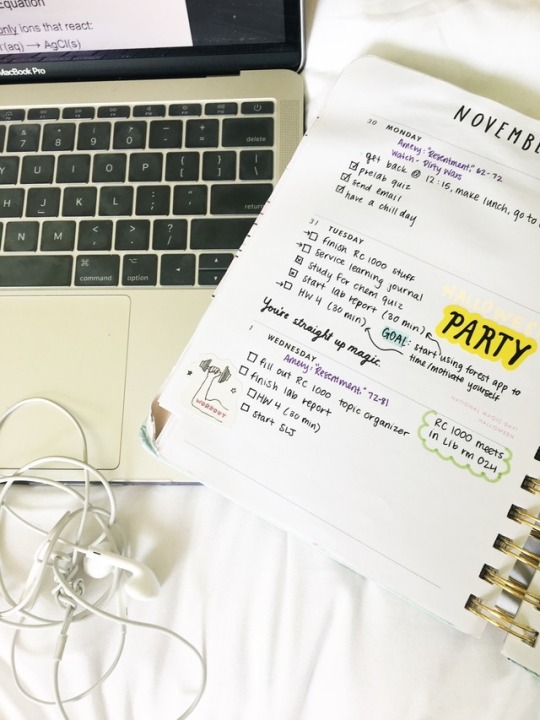 Equation
only ions that react:
(aq) → AgCl(s)
MacBook Pro
& * ( ) _ +
7 8 9 0 - = delete
Y U I O P { } |
[ ] \
H J K L : " return
; '
N M < > ?
, . /
⌘ command option
NOVEMBE
30 MONDAY
Amery: "Resentment" 62-72
Watch - Dirty Wars
get back @ 12:15, make lunch, go to
prelab quiz
send email
have a chill day
31 TUESDAY
finish RC 1000 stuff
service learning journal
study for chem quiz
start lab report (30 min)
HW 4 (30 min)
HALLOWEE
PARTY
GOAL: start using forest app to
time/motivate yourself
You're straight up magic.
NATIONAL MAGIC DAY
HALLOWEEN
1 WEDNESDAY
Amery: "Resentment" 72-81
fill out RC 1000 topic organizer
finish lab report
HW 4 (30 min)
start SLJ
WORKOUT
RC 1000 meets
in Lib rm 024